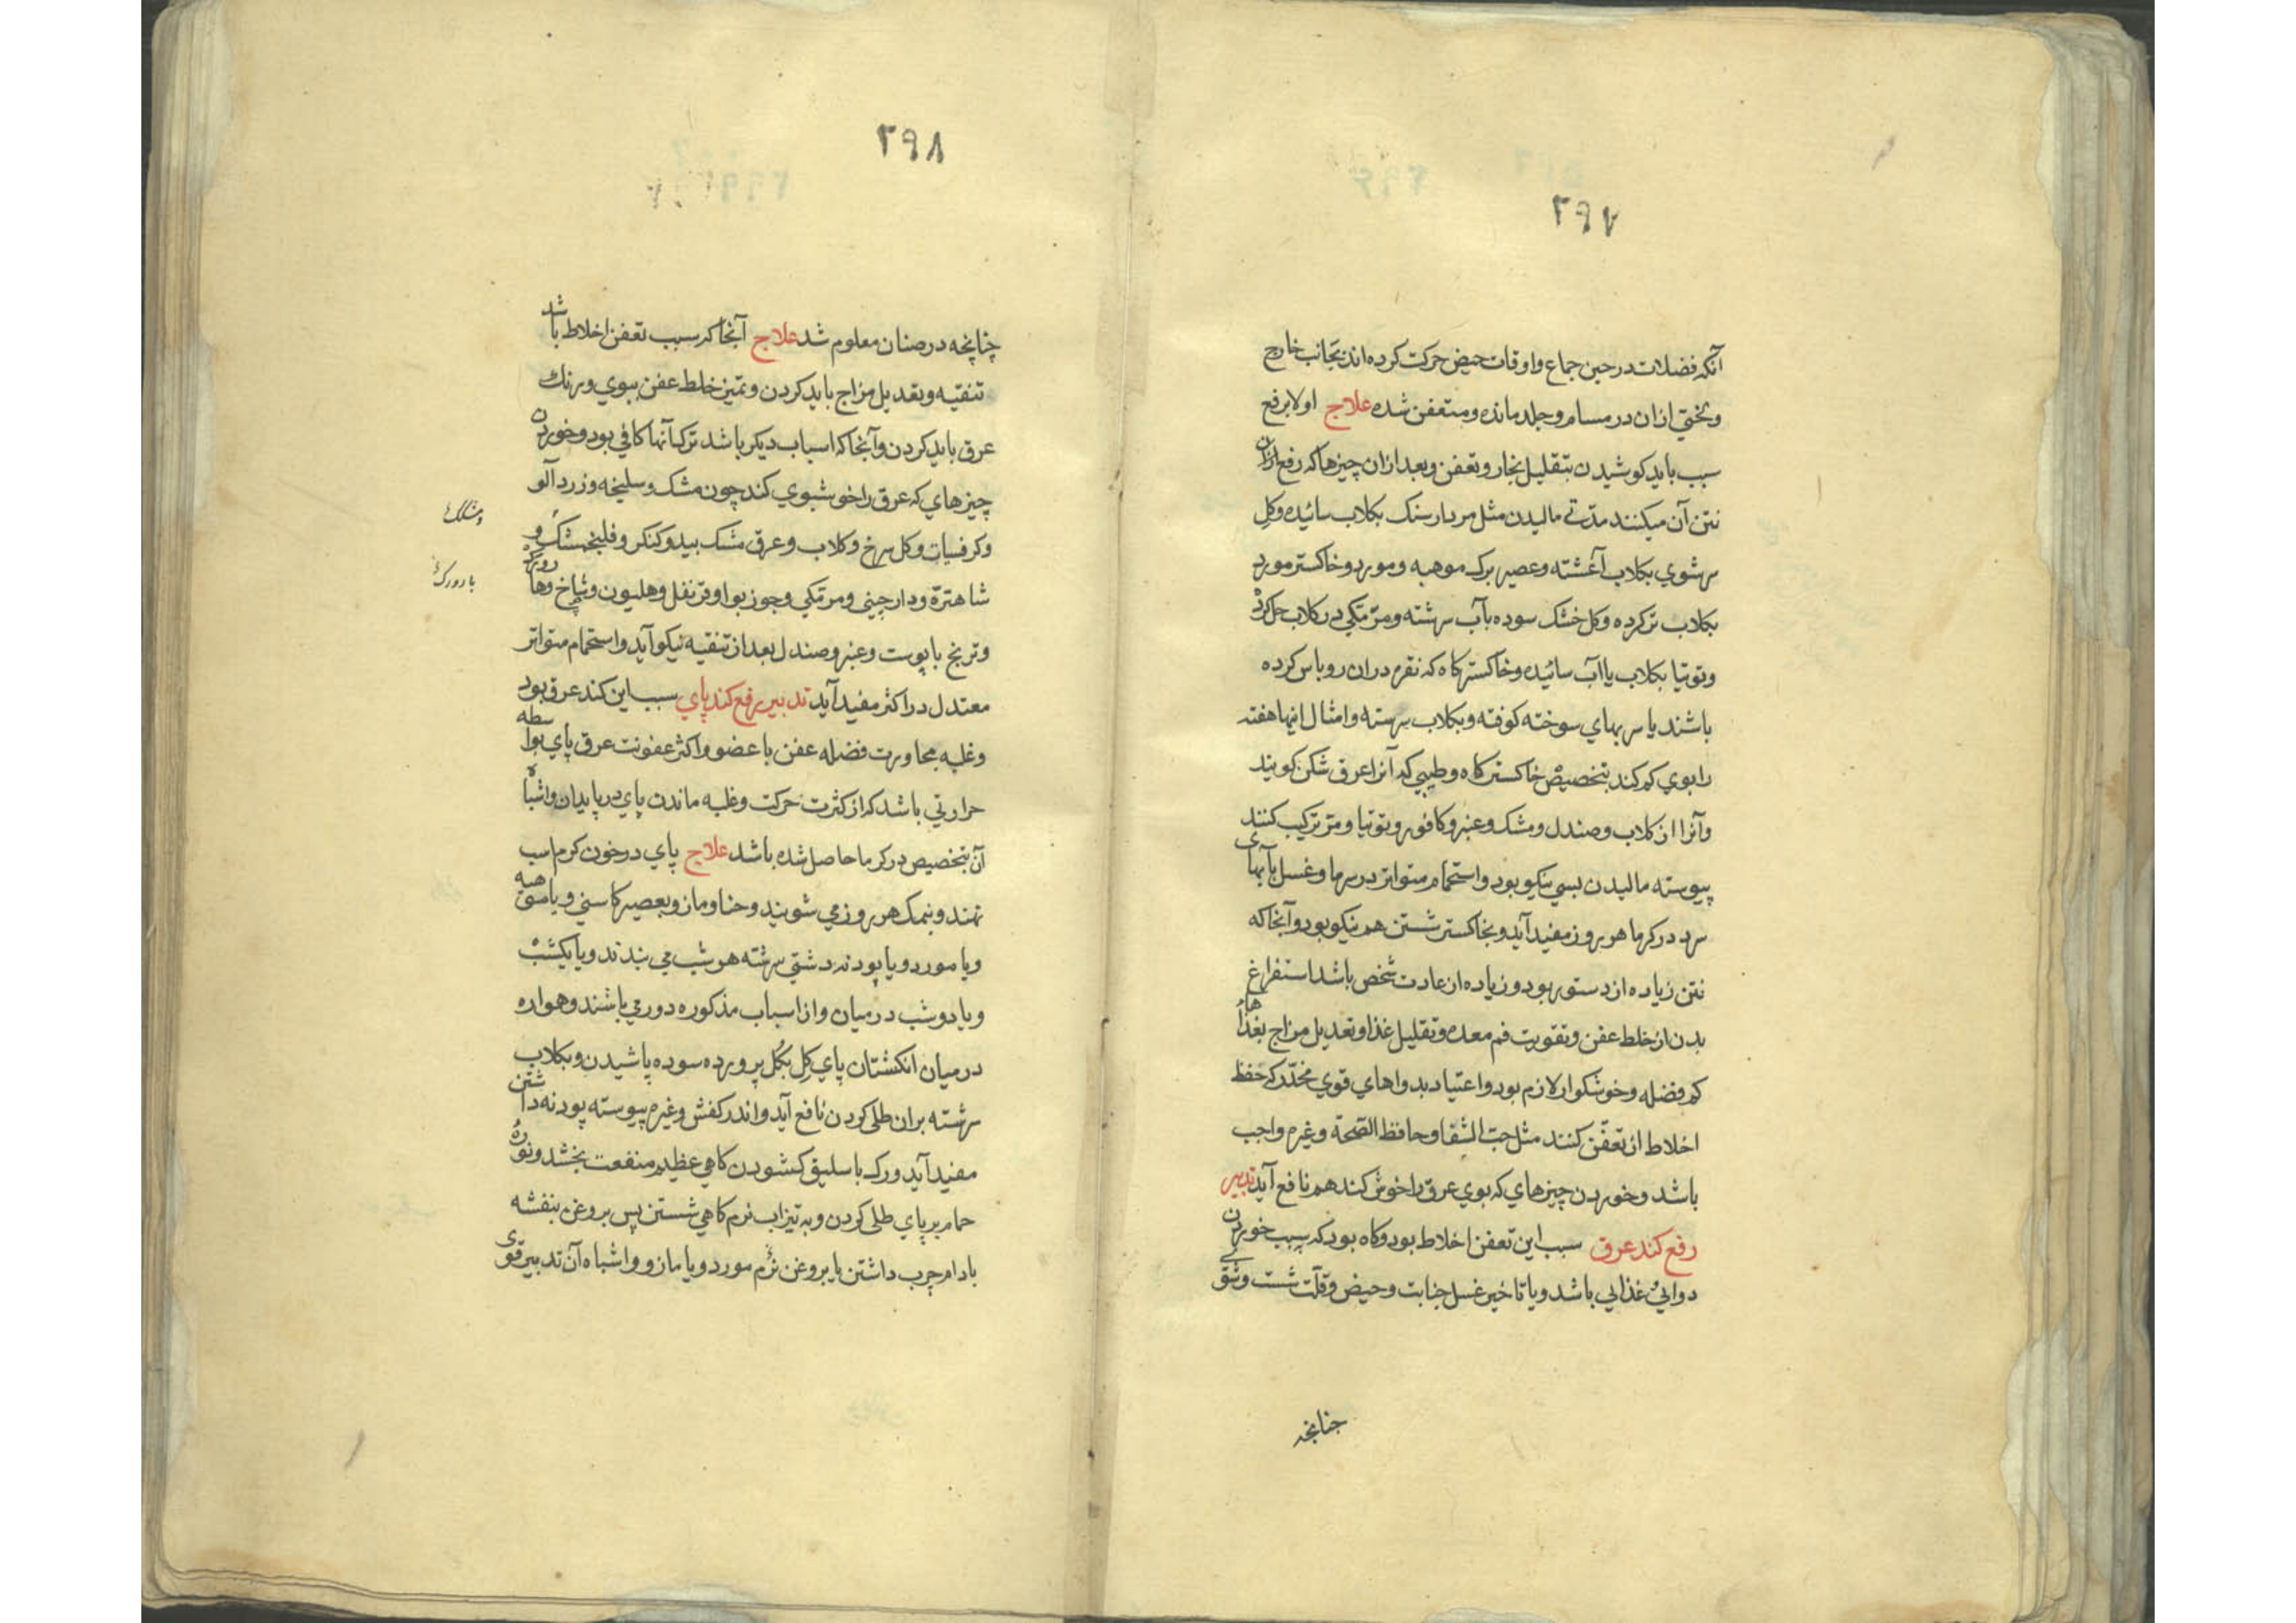 ۲۹۷
آنکه فضلات در حین جماع و اوقات حیض حرکت کرده اند بجانب خارج
و بختی ازان در مسام و جلد مانده و متعفن شده علاج اولا برفع
سبب باید کوشیدن بتقلیل بخار و تعفن و بعد ازان چیزها که رفع ازان
نتن آن میکنند مدتی مالیدن مثل مردار سنک بکلاب سائیده و کل
سرشوی بکلاب آغشته و عصیر برک موهبه و مورد و خاکستر مورد
بکلاب تر کرده و کل خشک سوده بآب سرشته و مر مکی در کلاب حل کرد
و توتیا بکلاب یا آب سائیده و خاکستر کاه که نقره دران روباس کرده
باشند یا سربهای سوخته کوفته و بکلاب سرشته و امثال اینها هفته
را بوی کم کند بتخصیص خاکستر کاه و طیبی که آنرا عرق شکن کویند
و آنرا از کلاب و صندل و مشک و عنبر و کافور و توتیا و مر ترکیب کنند
پیوسته مالیدن بسی نیکو بود و استحمام متواتر در سرما و غسل بآبهای
سرد در کرما هر روز مفید آید و بخاکستر شستن هم نیکو بود و آنجا که
نتن زیاده از دستور بود و زیاده از عادت شخص باشد استفراغ
بدن از خلط عفن و تقویت فم معده و تقلیل غذا و تعدیل مزاج بغذاها
کم فضله و خوشکوار لازم بود و اعتیاد بدواهای قوی مخدر که حفظ
اخلاط از تعفن کنند مثل حب الشفا و حافظ الصحة و غیره واجب
باشد و خوردن چیزهای که بوی عرق را خوش کند هم نافع آید تدبیر
رفع کند عرق سبب این تعفن اخلاط بود و کاه بود که بسبب خوردن
دوایی و غذایی باشد و یا تاخیر غسل جنابت و حیض و قلت شست و شوی
جنانچه
۲۹۸
چنانچه در صنان معلوم شد علاج آنجا که سبب تعفن اخلاط باشد
تنقیه و تعدیل مزاج باید کردن و تمیز خلط عفن ببوی و رنک
عرق باید کردن و آنجا که اسباب دیکر باشد ترک آنها کافی بود و خوردن
چیزهای که عرق را خوشبوی کند چون مشک و سلیخه و زردآلو
و کرفسیات و کل سرخ و کلاب و عرق مشک بید و کنکر و فلنجمشک و
شاهتره و دارچینی و مر مکی و جوز بوا و قرنفل و هلیون و
و ترنج با پوست و عنبر و صندل بعد از تنقیه نیکو آید و استحمام متواتر
معتدل در اکثر مفید آید تدبیر رفع کند پای سبب این کند عرق بود
و غلبه مجاورت فضله عفن با عضو و اکثر عفونت عرق پای بواسطه
حرارتی باشد که از کثرت حرکت و غلبه ماندن پای در پایدان و اشباه
آن بتخصیص در کرما حاصل شده باشد علاج پای در خون کرم اسب
نهند و بنمک هر روز می شویند و حنا و مازو بعصیر کاسنی و یا
و یا مورد و یا پودنه دشتی سرشته هر شب می بندند و یا یکشب
و یا دو شب در میان و از اسباب مذکوره دور می باشند و هواره
در میان انکشتان پای کل بکل پرورده سوده پاشیدن و بکلاب
سرشته بران طلی کردن نافع آید و اندر کفش و غیره پیوسته پودنه داشتن
مفید آید و رک باسلیق کشودن کاهی عظیم منفعت بخشد و نوره
حمام بر پای طلی کردن و به تیزاب نرم کاهی شستن پس بروغن بنفشه
بادام چرب داشتن یا بروغن نرم مورد و یا مازو و اشباه آن تدبیر قوی